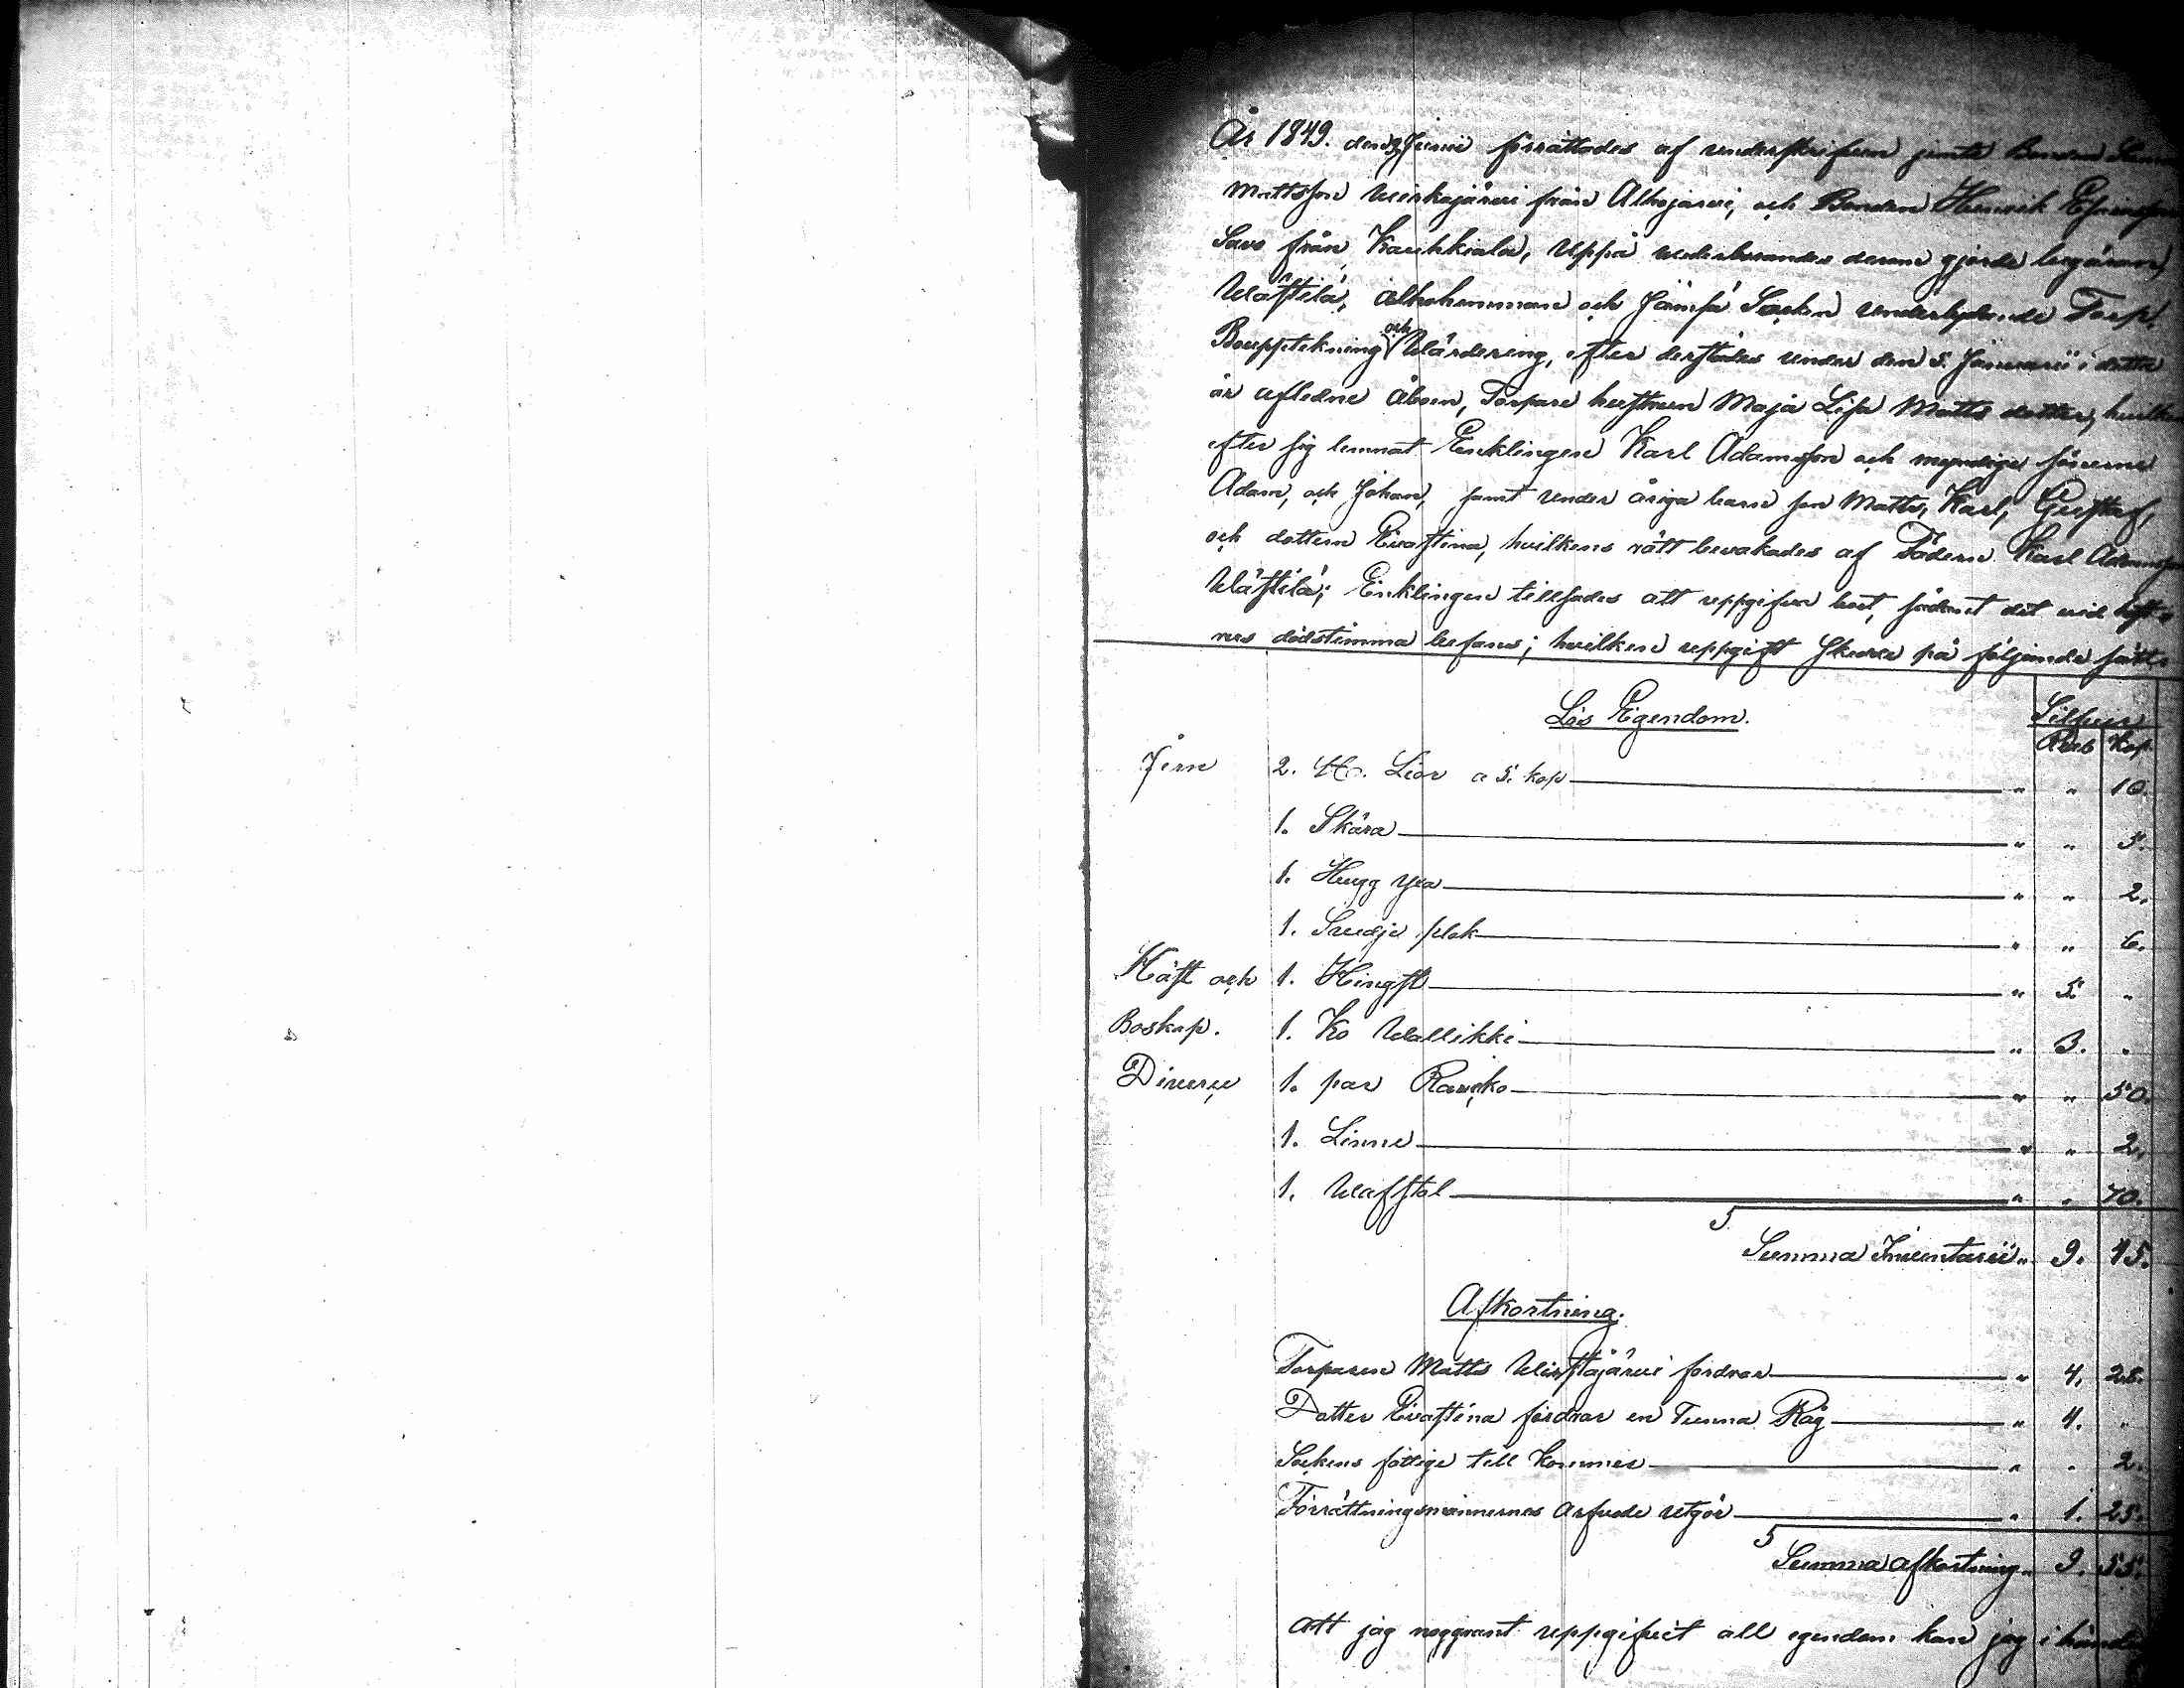 År 1849. den 9 Junii förrättades af underskrifven jemte Bonden
Mattsson Wirkajärvi från Alhojärvi, och Bonden Henrik
Savo från Kauhkiala, Uppå vederborandes derom gjorde begäran,
Wästilä, alhohemman och Jämsä Socken underlydande Torp.
Bouppteckning och Wärdering, efter derstädes under den 5. Januarii i detta
år afledne åboen, Torpare hustrun Maja Lisa Matts dotter, hvilken
efter sig lemnat Enklingen Karl Adamsson och myndige sönerne
Adam, och Johan, samt under åriga barn son Matts, Karl, Gustaf,
och dottern Evastina, hvilkens rätt bevakades af Fadern Karl Adamsson
Wästilä; Enklingen tillsades att uppgifva boet, sådant det vid
nes dödstimma befans; hvilken uppgift Skedde på följande sätt:
Lös Egendom. Silfver
Rub Kop
Jern 2. st. Liar a 5. kop " " 10.
1. Skära " " 5.
1. Hugg yxa " " 2.
1. Smedje slek " " 6.
Häst och 1. Hingst " 5. "
Boskap. 1. Ko Wallikki " 3. "
Diverse 1. par Ransko " " 50.
1. Linne " " 2.
1. Wafstol " " 70.
S
Summa Inventarii " 9. 45.
Afkortning.
Torparen Matts Wirstajärvi fordrar " 4. 28.
Dotter Evastina fordrar en Tunna Råg " 4. "
Sockens fattige till kommer " " 2.
Förrättningsmännernes Arfvode utgör " 1. 25.
S
Summa afkortning " 9. 55.
Att jag noggrant uppgifvit all egendom kan jag i